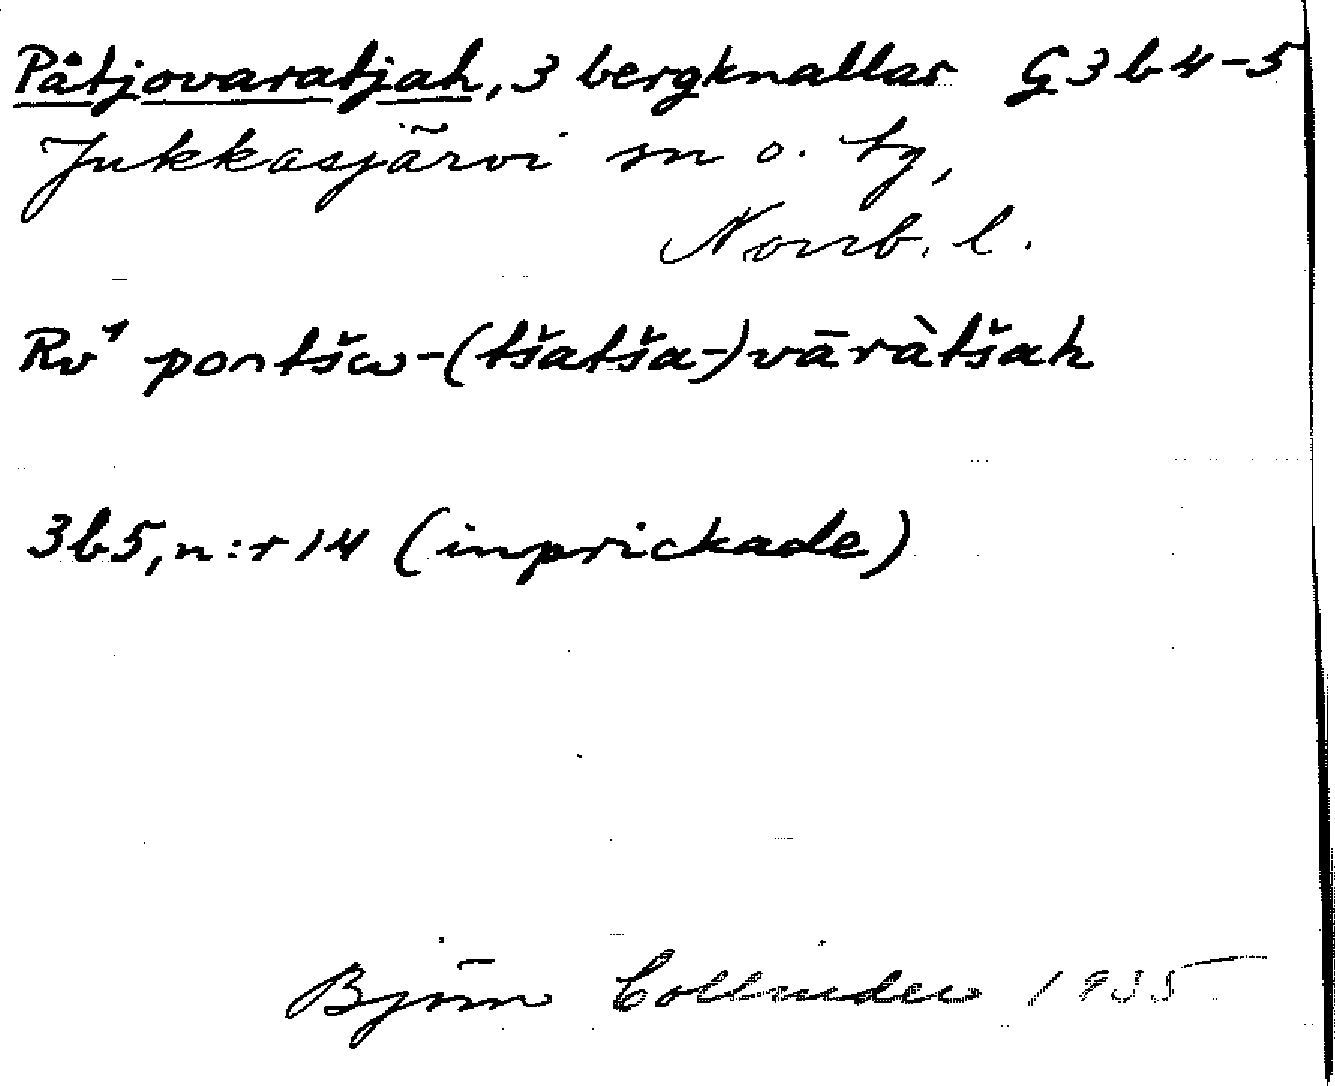 Påtjovaratjah, 3 bergknallar G 3 b 4-5
Jukkasjärvi sn o. tg,
Norrb. l.
Rv¹ pontšω-(tšatša-)vāràtšah
3b5, n:r 14 (inprickade)
Björn Collinder 1935